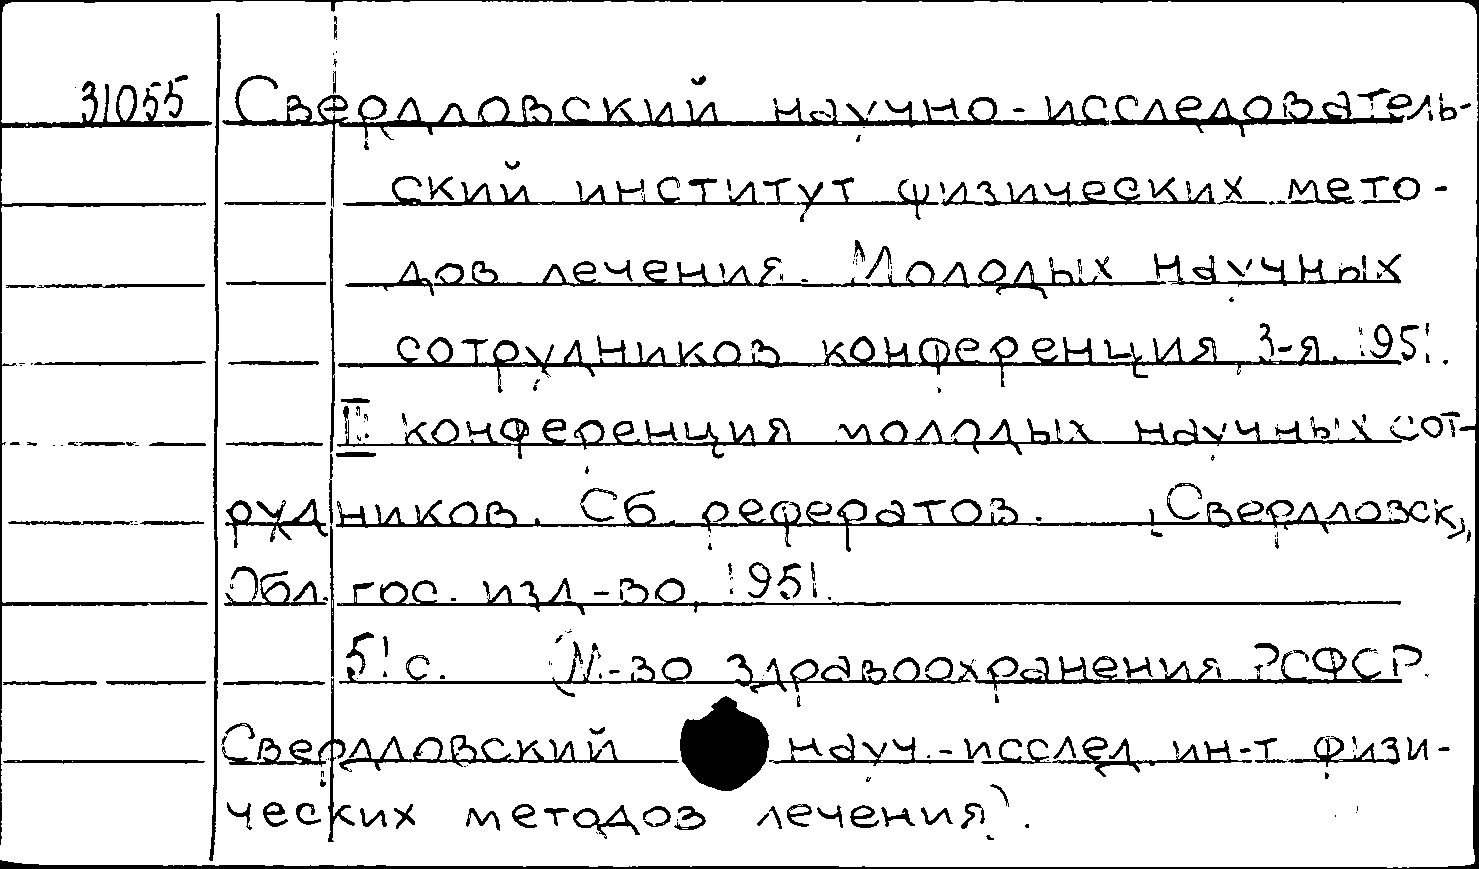 31055 Свердловский научно-исследователь-
ский институт физических мето-
дов лечения. Молодых научных
сотрудников конференция, 3-я. 1951.
III конференция молодых научных сот-
рудников. Сб. рефератов. [Свердловск],
Обл. гос. изд-во, 1951.
51 с. (М-во здравоохранения РСФСР.
Свердловский науч.-исслед. ин-т физи-
ческих методов лечения).